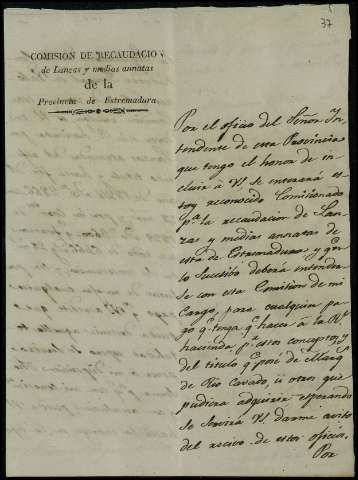 37
COMISION DE RECAUDACIO
de Lanzas y medias annatas
de la
Provincia de Estremadura.
Por el oficio del Señor Yn-
tendente de esta Provincia
que tengo el honor de in-
cluir a VS. se enterará es-
toy reconocido Comisionado
pª. la recaudacion de Lan-
zas y medias annatas de
esta de Estremadura y qᵉ en
lo sucesivo deberá entender-
se con esta Comision de mi
cargo, para cualquier pa-
go qᵉ tenga qᵉ hacer á la Rˡ
hacienda pʳ estos conceptos y
del titulo qᵉ posé de Marqˢ
de Rio Cavado, ú otros que
pudiera adquirir esperando
se servirá VS. darme aviso
del recivo de este oficio.
Por